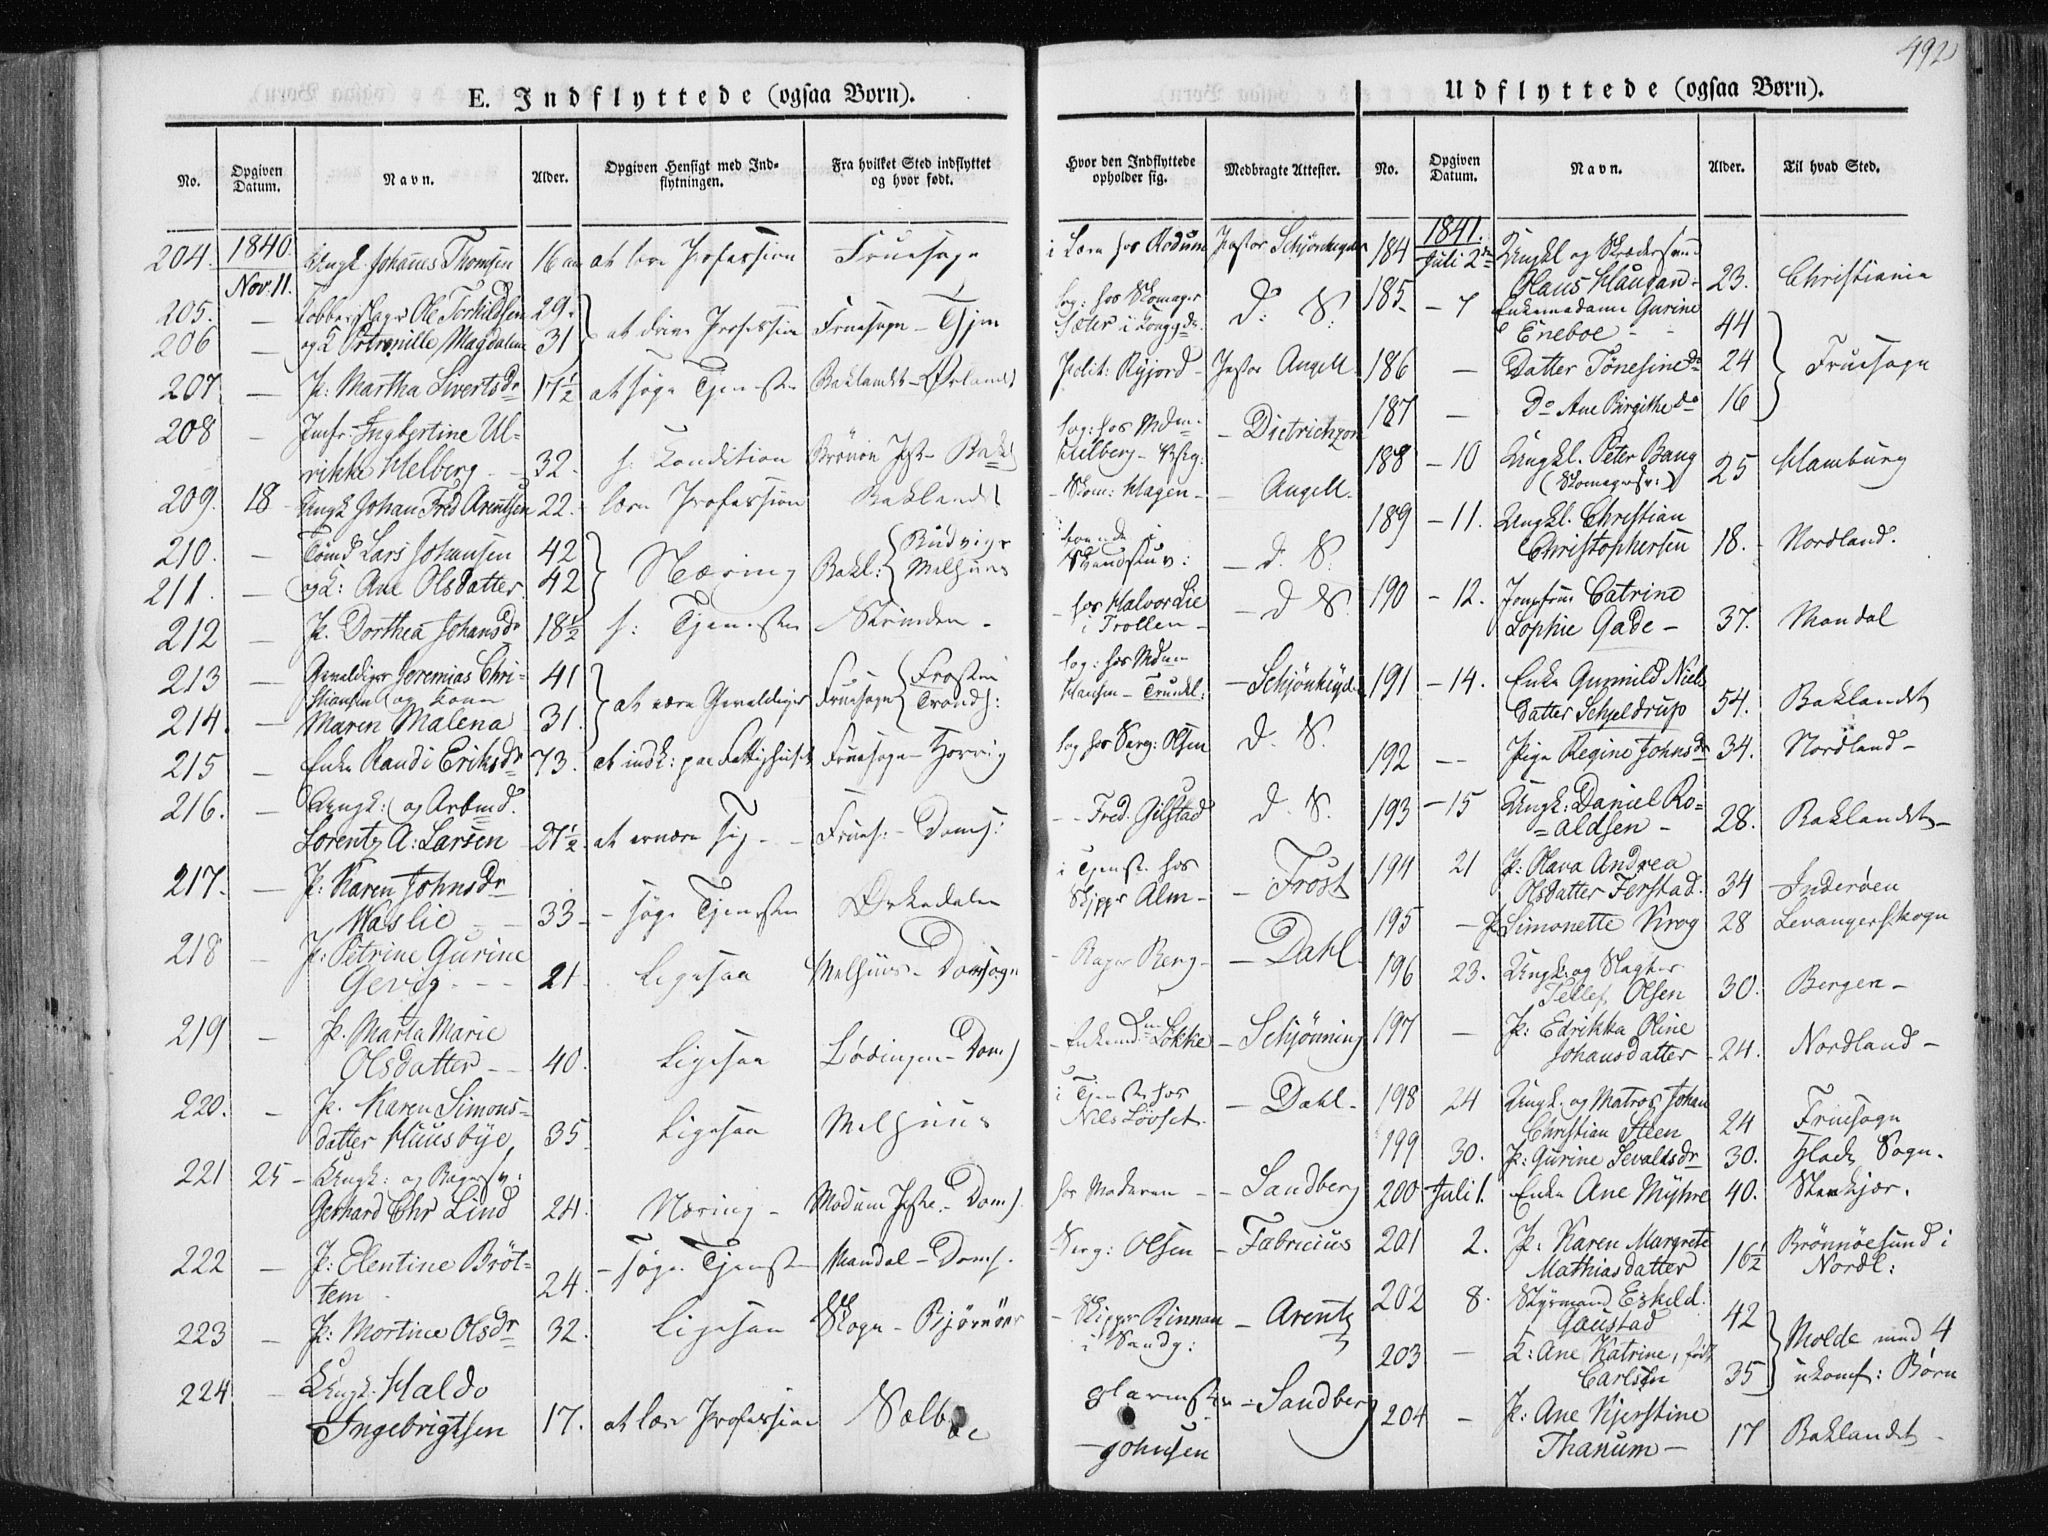 492
E. Indflyttede (ogsaa Børn).
No. Opgiven Datum. Navn. Alder. Opgiven Hensigt med Indflytningen. Fra hvilket Sted indflyttet og hvor født. Hvor den Indflyttede opholder sig. Medbragte Attester.
204. 1840. Nov. 11. Ungk. Johannes Thomsen 16 at lære Profession Fruesogn i Lære hos Rodum Pastor Schjønheyder
205. — Kobberslager Ole Torkildsen 29. at drive Profession Fruesogn — log: hos Skomager D. S.
206 — og K Petronille Magdalene 31
207. — P: Martha Sivertsdr 17½ at søge Tjeneste Baklandet — Ørlandet Polit: Ryjord — Pastor Angell.
208 — Jmfr. Ingbertine Ulrikke Helberg — 32. s: Kondition log: hos Mdm. Helberg — Dietrichson
209. 18 — Ungk Johan Fred Arentsen 22. lære Profession Baklandet — Skom: Hagen — — Angell.
210. — Tømd Lars Johansen 42 Næring Bakl: Budvigs — D. S.
211. — og K: Ane Olsdatter 42 Melhuus
212 — P. Dorthea Johansdr 18½ s: Tjeneste Strinden — — hos Halvor Lie i Trollen — — D S.
213 — Gevaldiger Jeremias Christiansen (og Kone 41 at være Gevaldiger Fruesogn Frosten log: hos Mdm Hansen — — Schjønheyder
214. — Maren Malena 31. Trondh:
215 — Enke Randi Eriksdr 73. at indk: paa Fattighuset Fruesogn — log hos Serg: Olsen D. S.
216. — Ungk: (og Arbmd. Lorentz A: Larsen 27½ at ernære sig — Frues: — Doms: — Fred. Gilstad D. S.
217. — P: Karen Johnsdr Waslie — 33 — søge Tjenesten Orkedalen i Tjeneste hos Skipper Alm — — Frost
218 — P: Petrine Gurine Gevig — 21. Ligesaa Melhuus — Domsogn — Bager Berg — — Dahl.
219 — P. Marta Marie Olsdatter — 40. Ligesaa Lødingen — Doms — Enkemdm Løkke — Schjønning
220. — P. Karen Simonsdatter Huusbye 35. Ligesaa Melhuus i Tjeneste hos Nils Løvset. — Dahl —
221 25 — Ungk: og Bagersv: Gerhard Chr Lind 24. Næring — Modum — Doms. hos Moderen — — Sandberg
222 — P: Elentine Brøttem 24. — søge Tjeneste Mandal — Doms. Serg: Olsen — Fabricius
223 — P: Mortine Olsdr 32. Ligesaa Skogn — Bjørnøer — Skipper Rinnan i Sandg: — Arentz
224. — Ungk. Haldo Ingebrigtsen 17. at lære Profession Sælboe Johnsen — Sandberg
Udflyttede (ogsaa Børn).
No. Opgiven Datum. Navn. Alder. Til hvad Sted.
184 1841. Juli 2den Ungkl og Skrædersvend Olaus Haugan — 23. Christiania
185. — 7 Enkemadame Gurine Eneboe — 44 Fruesogn
186 — Datter Tønesine do 24
187 — Do Ane Birgithe do 16
188 — 10 Ungkl. Peter Bang (Skomagersv:) 25 Hamburg
189 — 11. Ungkl. Christian Christophersen 18. Nordland.
190 — 12. Jomfrue Catrine Sophie Gade — 37. Mandal
191 — 14. Enke Gunnild Nielsdatter Scheldrup 54. Baklandet
192 — Pige Regine Johnsdr 34. Nordland —
193 — 15 Ungk: Daniel Roaldsen — 28. Baklandet —
194 21 P: Olava Andrea Olsdatter Ferstad. 34 Inderøen
195 — P Simonette Krog 28 Levangerskogn
196 23. Ungk. og Slagter Tellef Olsen 30. Bergen —
197 — P: Edrikka Oline Johansdatter 24. Nordland —
198 24 Ungk. og Matros Johan Christian Steen 24 Fruesogn
199 30. P: Gurine Sevaldsdr 30. Hlade Sogn.
200 Juli 1. Enke Ane Myhre 40. Stenkjær.
201 2. P: Karen Margrete Mathiasdatter 16½ Brønnøesund i Nordl:
202 8. Styrmand Eskild Gaustad 42 Molde med 4
203 — K: Ane Katrine, født Carlsen 35 ukonf: Børn
204 — P: Ane Kjerstine Thanum — 17 Baklandet —